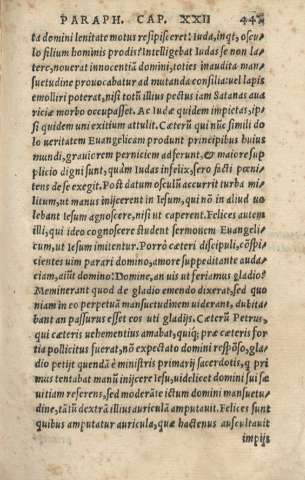 PARAPH. CAP. XXII 447
ta domini lenitate motus resipisceret: Iuda, inqt, oscu-
lo filium hominis prodis? Intelligebat Iudas se non la-
tere, nouerat innocentiã domini, toties inaudita man-
suetudine prouocabatur ad mutanda consilia: uel lapis
emolliri poterat, nisi totũ illius pectus iam Satanas aua
riciæ morbo occupasset. Ac Iudæ quidem impietas, ip-
si quidem uni exitium attulit. Cæterũ qui nũc simili do
lo ueritatem Euangelicam produnt principibus huius
mundi, grauiorem perniciem adferunt, & maiore sup
plicio digni sunt, quàm Iudas infelix, sero facti pœni
tens de se exegit. Post datum osculũ accurrit turba mi-
litum, ut manus inijcerent in Iesum, qui nõ in aliud uo
lebant Iesum agnoscere, nisi ut caperent. Felices autem
illi, qui ideo cognoscere student sermonem Euangeli-
cum, ut Iesum imitentur. Porrò cæteri discipuli, cõspi-
cientes uim parari domino, amore suppeditante auda-
ciam, aiũt domino: Domine, an uis ut feriamus gladio?
Meminerant quod de gladio emendo dixerat, sed quo
niam in eo perpetuã mansuetudinem uiderant, dubita-
bant an passurus esset eos uti gladijs. Cæterũ Petrus,
qui cæteris uehementius amabat, quiq; præ cæteris for-
tia pollicitus fuerat, nõ expectato domini respõso, gla-
dio petijt quendã è ministris primarij sacerdotis, q pri
mus tentabat manũ inijcere Iesu, uidelicet domini sui sæ
uitiam referens, sed moderãte ictum domini mansuetu-
dine, tãtũ dextrã illius auriculã amputauit. Felices sunt
quibus amputatur auricula, quæ hactenus auscultauit
impijs